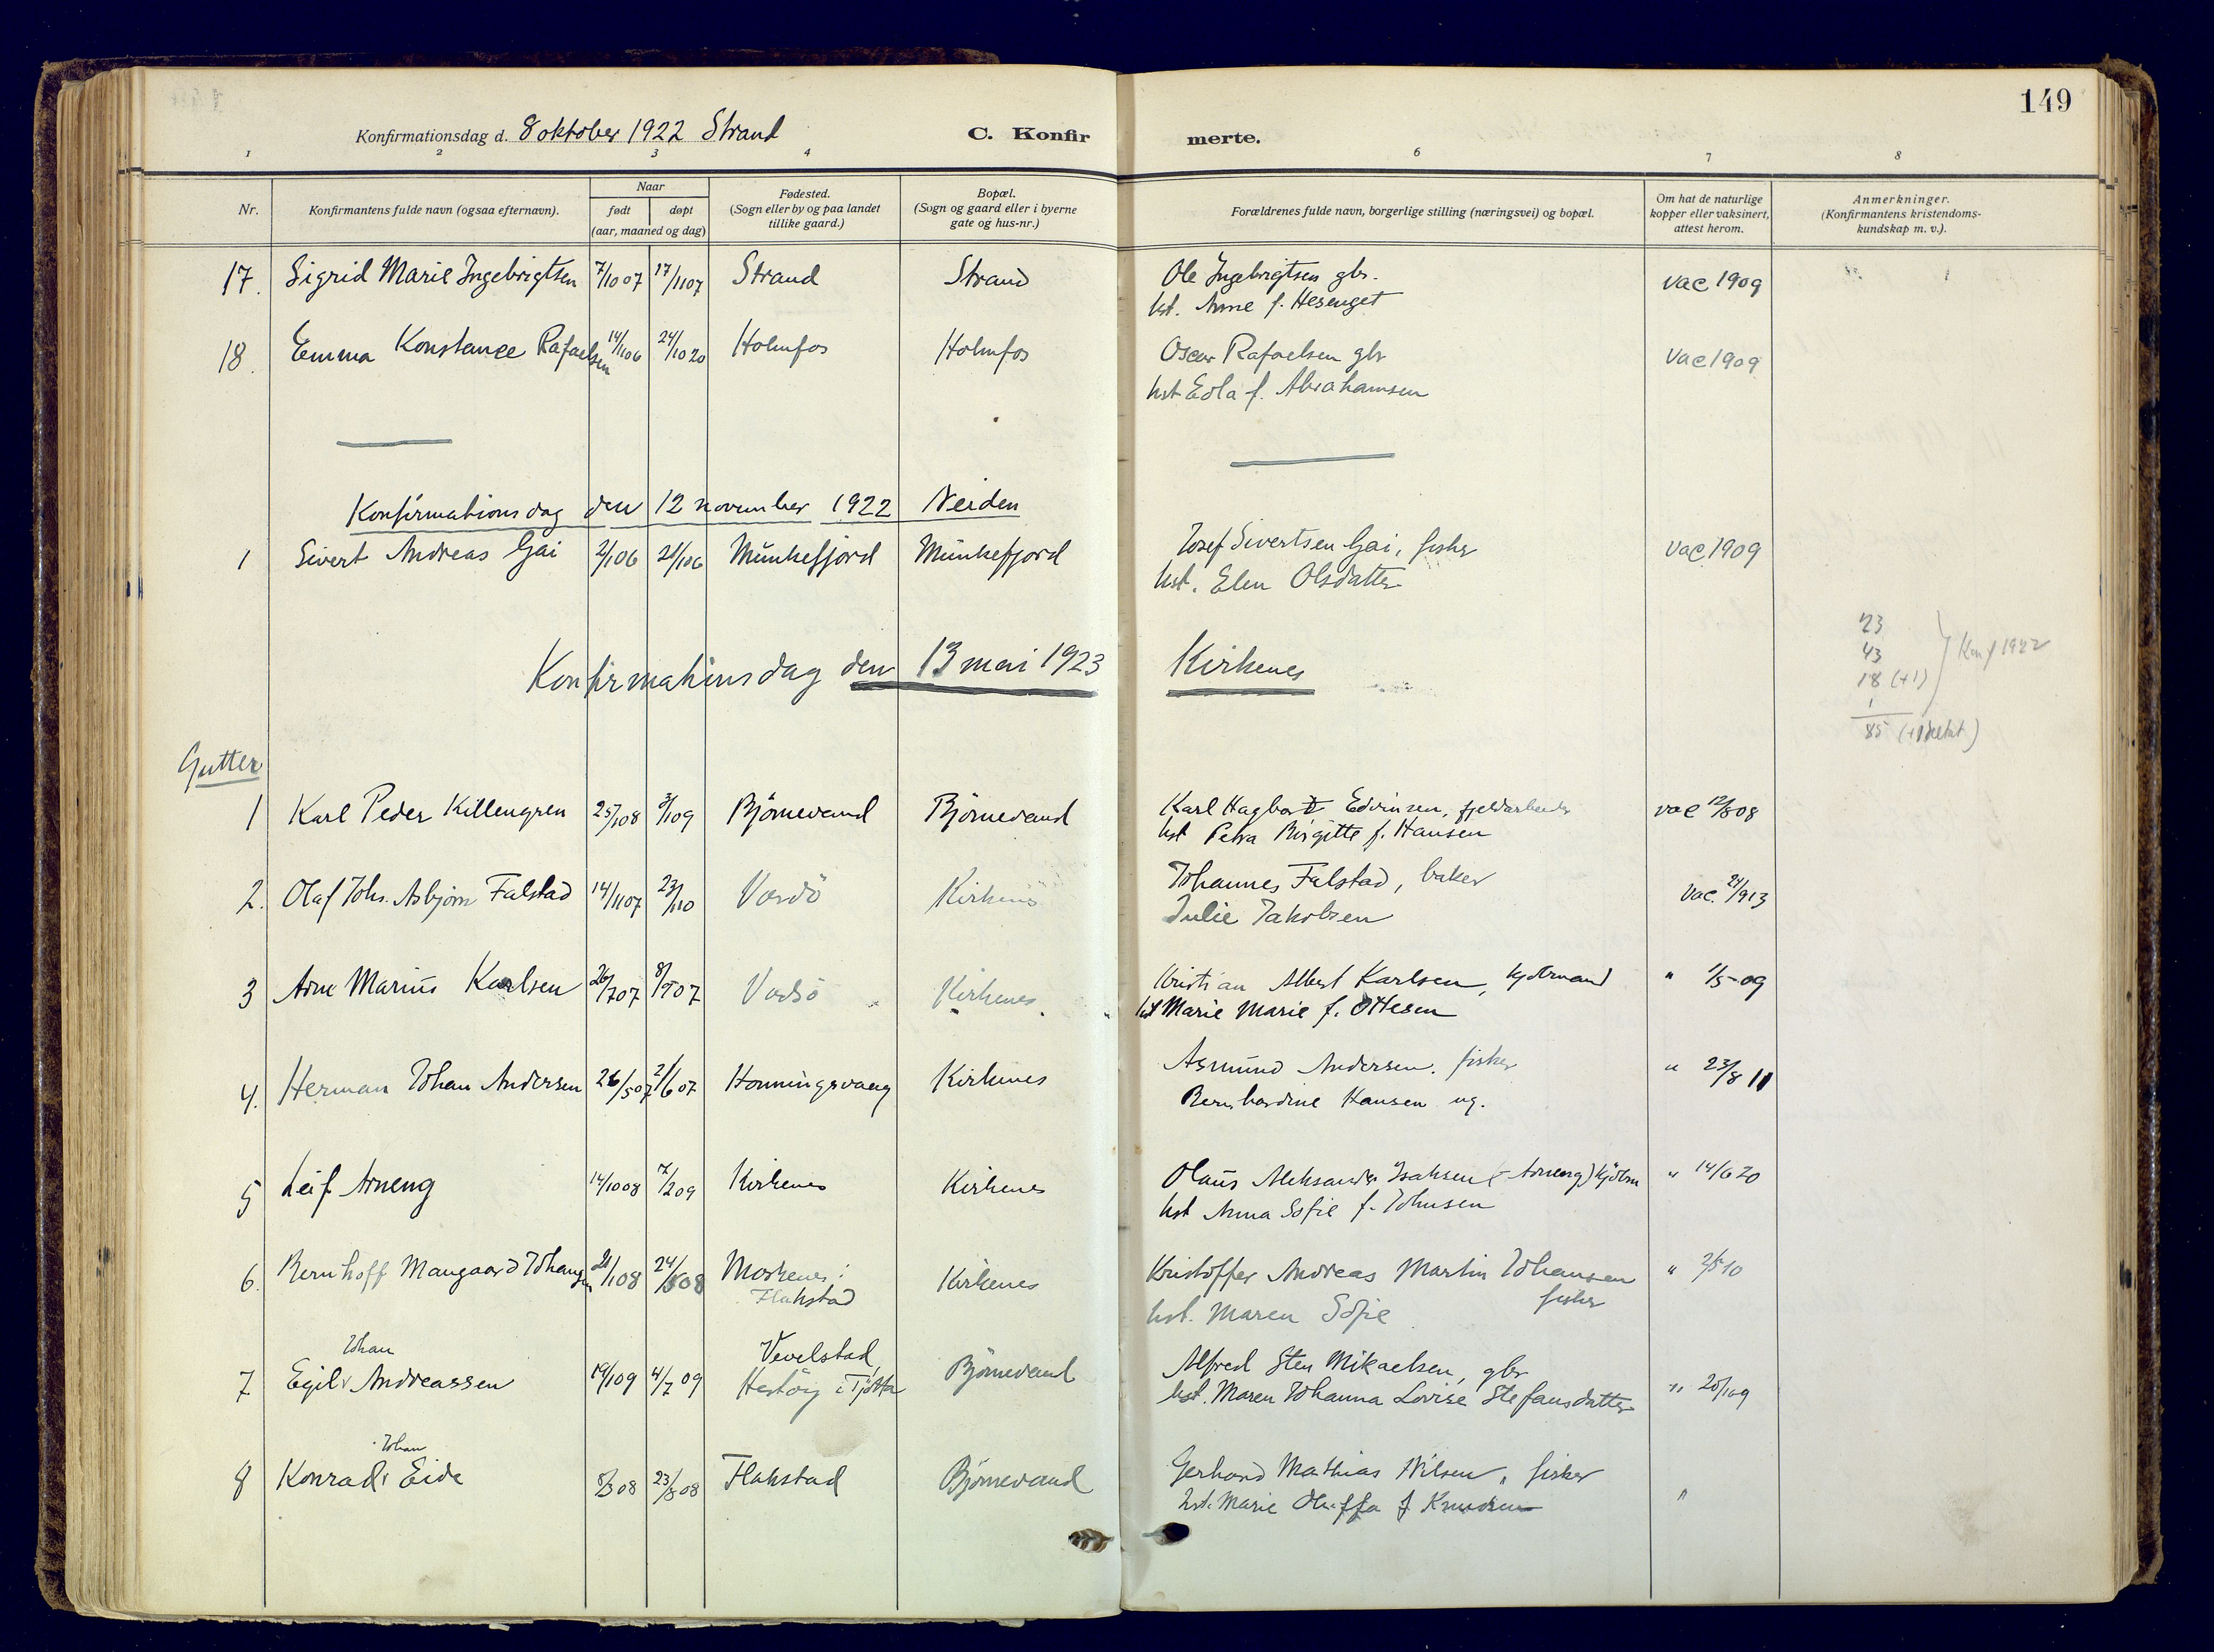 149
Konfirmationsdag d. 8 oktober 1922 Strand
C. Konfirmerte.
1 2 3 4 6 7 8
Nr.
Konfirmantens fulde navn (ogsaa efternavn).
Naar
født døpt
(aar, maaned og dag)
Fødested.
(Sogn eller by og paa landet
tillike gaard.)
Bopæl.
(Sogn og gaard eller i byerne
gate og hus-nr.)
Forældrenes fulde navn, borgerlige stilling (næringsvei) og bopæl.
Om hat de naturlige
kopper eller vaksinert,
attest herom.
Anmerkninger.
(Konfirmantens kristendoms-
kundskap m. v.).
17. Sigrid Marie Ingebrigtsen 7/10 07 17/11 07 Strand Strand Ole Ingebrigtsen gbr. vac 1909
hst. Anne f. Hesenget
18. Emma Konstance Rafaelsen 14/11 06 24/10 20 Holmfos Holmfos Oscar Rafaelsen gbr vac 1909
hst Edla f. Abrahamsen
Konfirmationsdag den 12 november 1922 Neiden
1 Sivert Andreas Gai 2/1 06 21/1 06 Munkefjord Munkefjord Josef Sivertsen Gai, fisker vac. 1909
hst. Elen Olsdatter
Konfirmationsdag den 13 mai 1923 Kirkenes
23
43
18 (+1)
1
Konf 1922
85
Gutter
1 Karl Peder Killengren 25/1 08 3/1 09 Björnevand Björnevand Karl Hagbart Edvinsen, fjeldarbeider vac 12/8 08
hst Petra Birgitte f. Hansen
2. Olaf Johs. Asbjørn Falstad 14/11 07 23/1 10 Vardö Kirkenes Johannes Falstad, baker vac. 24/9 13
Julie Jakobsen
3 Arne Marius Karlsen 26/7 07 8/9 07 Vadsö Kirkenes Kristian Albert Karlsen, kjöbmand " 1/5-09
hst Marie Marie f. Ottesen
4. Herman Johan Andersen 26/5 07 21/6 07 Honningsvaag Kirkenes Asmund Andersen. fisker " 23/8 11
Bernhardine Hansen ug.
5 Leif Arneng 14/10 08 7/2 09 Kirkenes Kirkenes Olaus Aleksander Isaksen (- Arneng) kjöbm " 14/6 20
hst Anna Sofie f. Johnsen
6. Bernhoff Mangaard Johansen 21/1 08 24/5 08 Moskenes i Kirkenes Kristoffer Andreas Martin Johansen " 2/5 10
Flakstad fisker
hst. Maren Sofie
7 Egil Johan Andreassen 19/1 09 4/7 09 Vevelstad, Björnevand Alfred Sten Mikaelsen, gbr " 20/1 09
Hestöy i Tjötta hst. Maren Johanna Lovise Stefansdatter
8 Konrad Johan Eide 8/3 08 23/8 08 Flakstad Björnevand Gerhard Mathias Nilsen, fisker "
hst. Marie f Knudsen